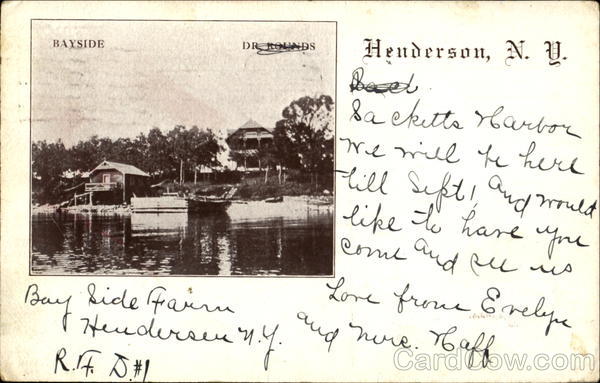 BAYSIDE
DR ROUNDS
Henderson, N. Y.
Sacketts Harbor
We will be here
till Sept 1, and would
like to have you
come and see us
Love from Evelyn
and Mrs. Haff
Bay Side Farm
Henderson N.Y.
R.F.D.#1
CardCow.com